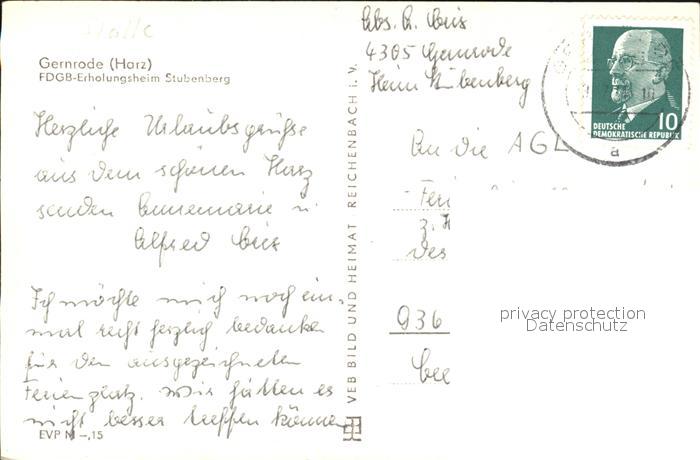 Halle
Gernrode (Harz)
FDGB-Erholungsheim Stubenberg
Herzliche Urlaubsgrüsse
aus dem schönen Harz
senden Annemarie u
Alfred
Ich möchte mich noch ein-
mal recht herzlich bedanken
für den ausgezeichneten
Ferienplatz. Wir hätten es
nicht besser treffen können
EVP M -,15
VEB BILD UND HEIMAT · REICHENBACH i. V.
Abs. A.
4305 Gernrode
Heim Stubenberg
DEUTSCHE
DEMOKRATISCHE REPUBLIK
10
a
An die AGL
Feri
z. H
des
936
privacy protection
Datenschutz